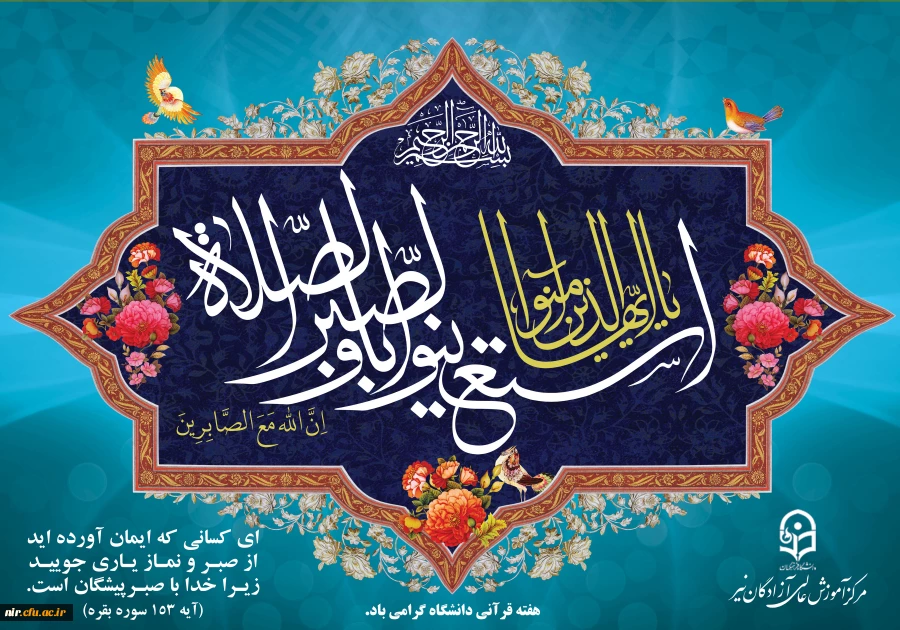 بسم الله الرحمن الرحیم
یا ایها الذین امنوا
استعینوا بالصبر و الصلاة
اِنَّ الله مَعَ الصَّابِرِینَ
ای کسانی که ایمان آورده اید
از صبر و نماز یاری جویید
زیرا خدا با صبرپیشگان است.
(آیه ۱۵۳ سوره بقره)
هفته قرآنی دانشگاه گرامی باد.
دانشگاه فرهنگیان
مرکز آموزش عالی آزادگان نیر
nir.cfu.ac.ir